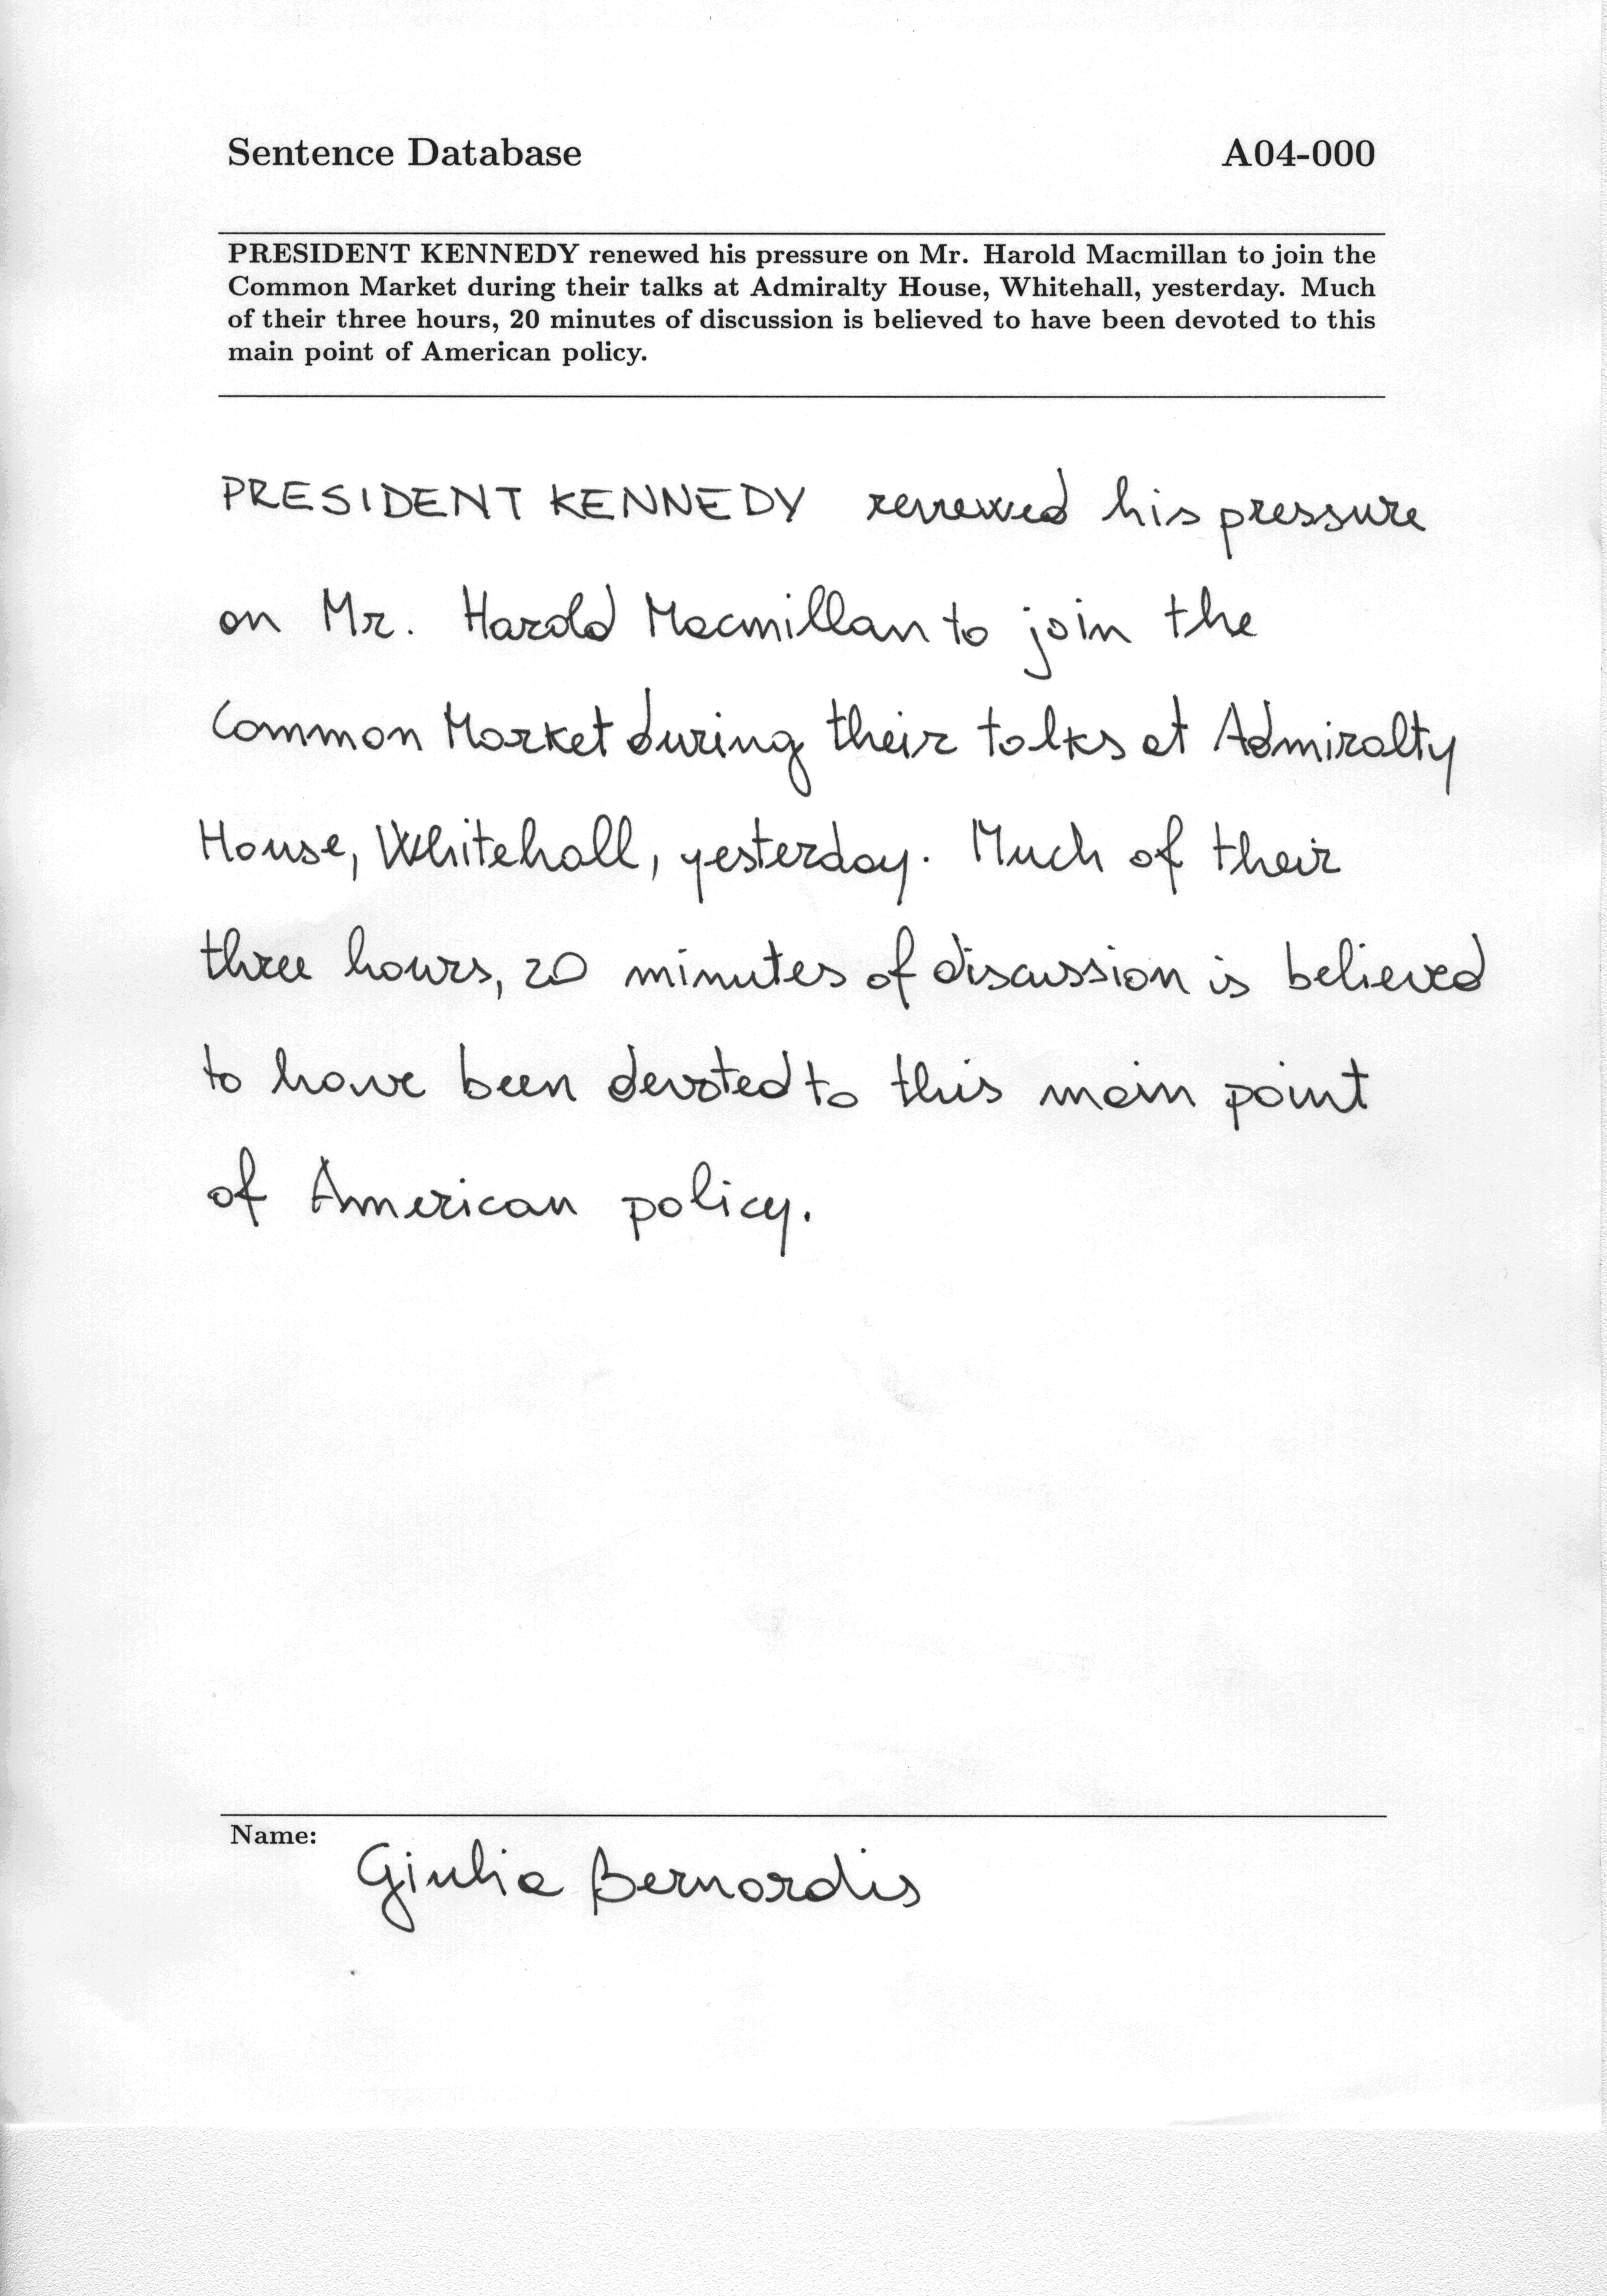 Sentence Database A04-000
PRESIDENT KENNEDY renewed his pressure on Mr. Harold Macmillan to join the
Common Market during their talks at Admiralty House, Whitehall, yesterday. Much
of their three hours, 20 minutes of discussion is believed to have been devoted to this
main point of American policy.
PRESIDENT KENNEDY renewed his pressure
on Mr. Harold Macmillan to join the
Common Market during their talks at Admiralty
House, Whitehall, yesterday. Much of their
three hours, 20 minutes of discussion is believed
to have been devoted to this main point
of American policy.
Name:
Giulia Bernardis